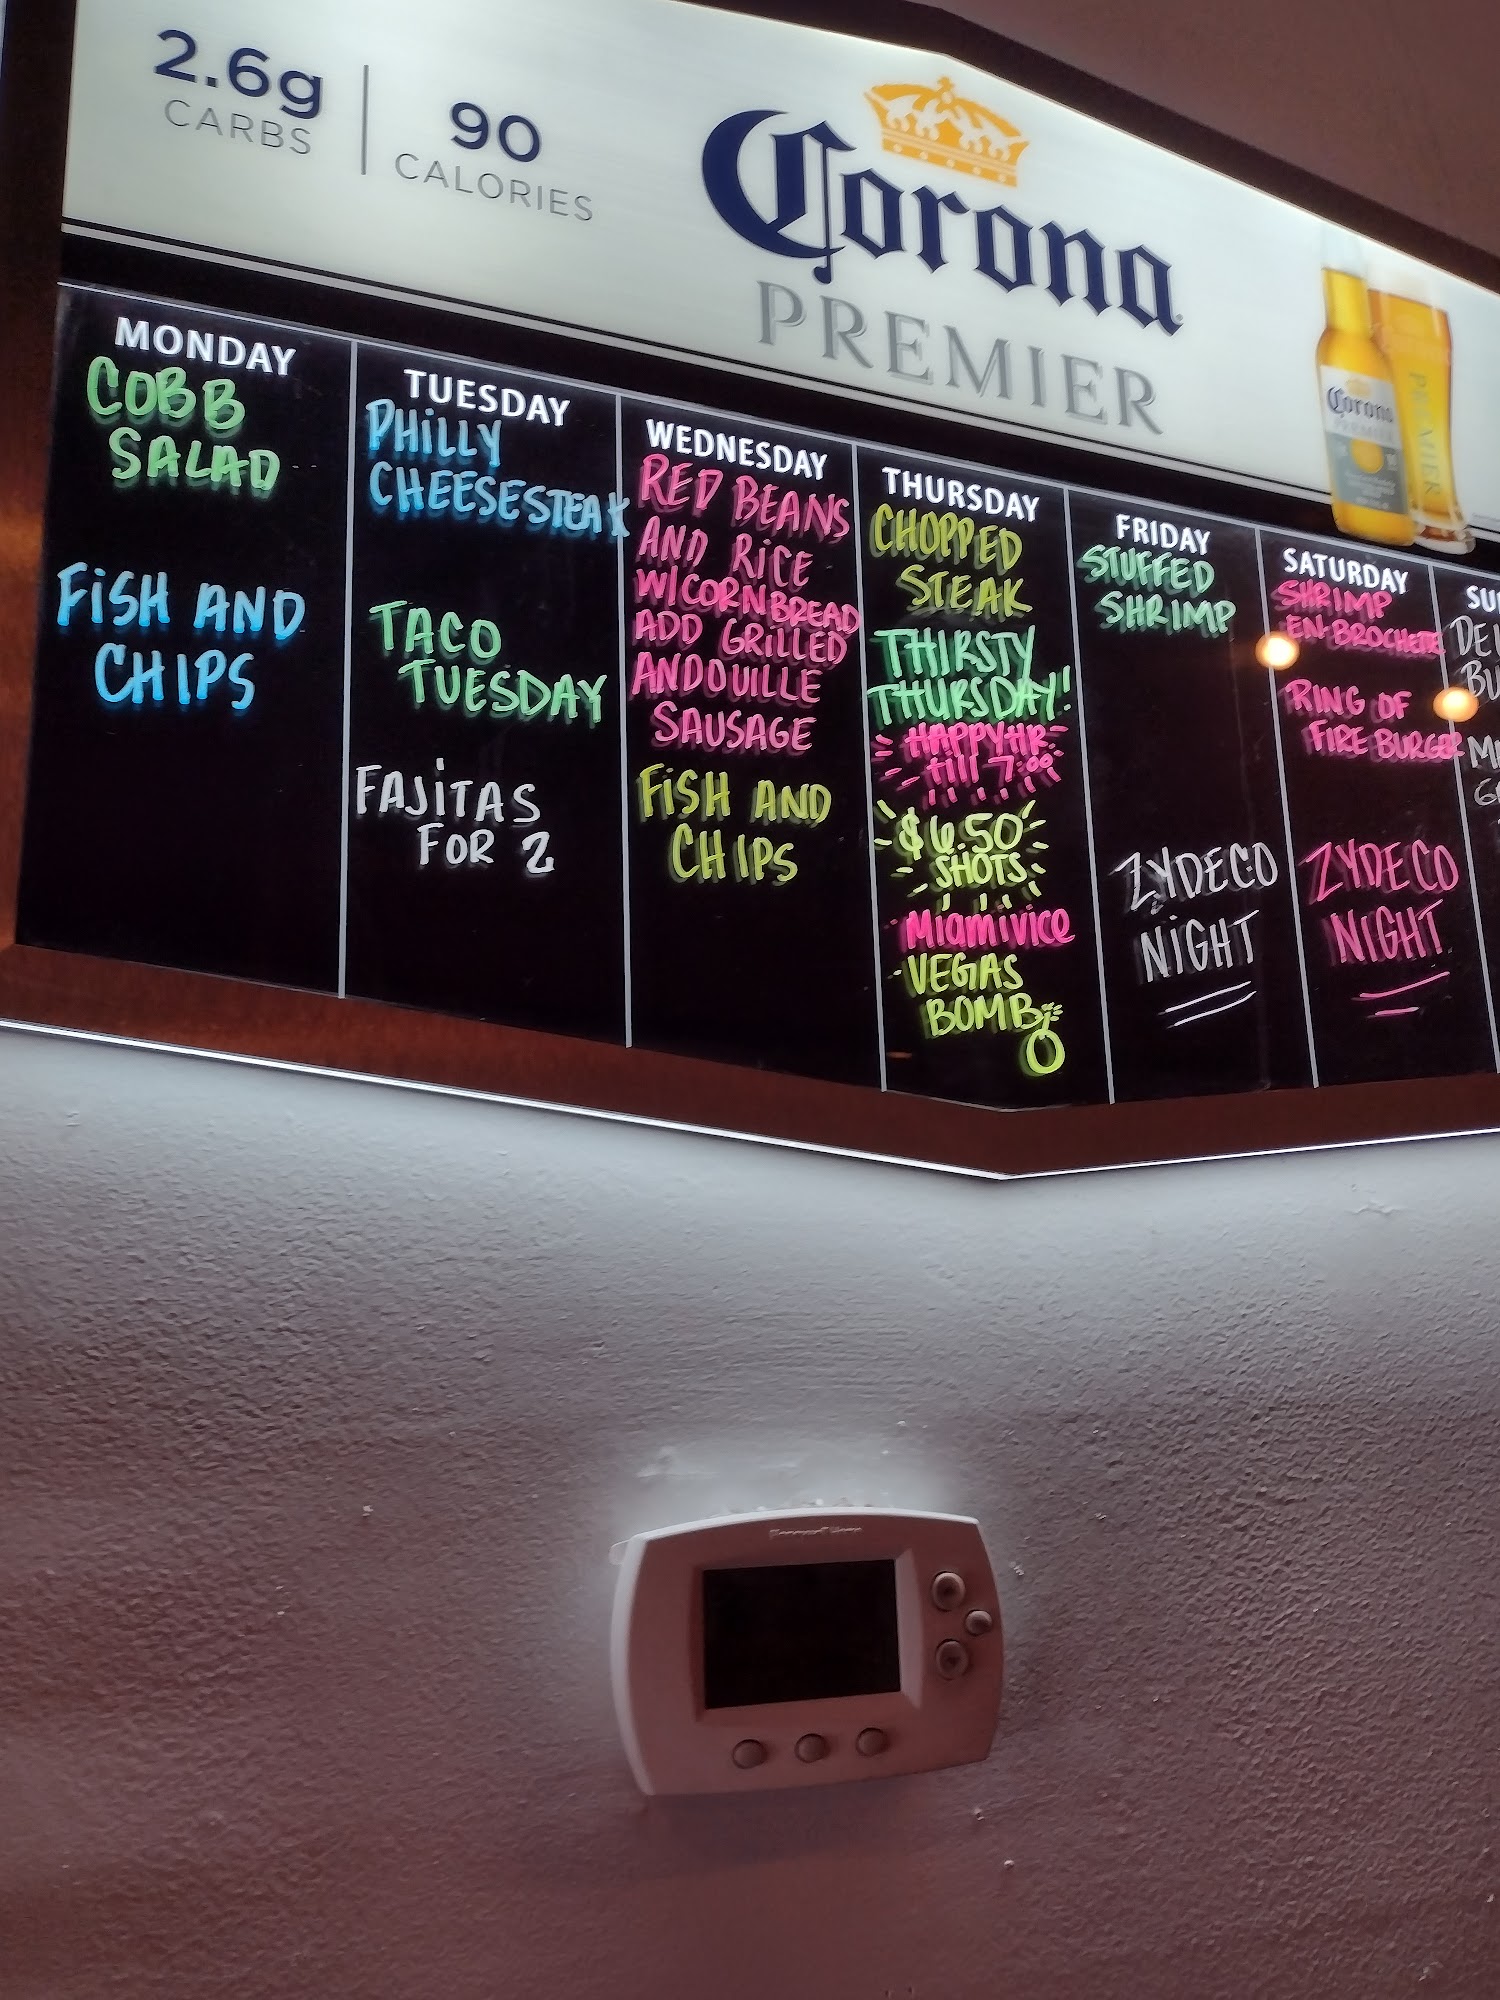 2.6g
CARBS
90
CALORIES
Corona
PREMIER
Corona
PREMIER
PREMIER
MONDAY
COBB
SALAD
FISH AND
CHIPS
TUESDAY
PHILLY
CHEESESTEAK
TACO
TUESDAY
FAJITAS
FOR 2
WEDNESDAY
RED BEANS
AND RICE
W/CORNBREAD
ADD GRILLED
ANDOUILLE
SAUSAGE
FISH AND
CHIPS
THURSDAY
CHOPPED
STEAK
THIRSTY
THURSDAY!
HAPPY HR
till 7:00
$6.50
SHOTS
Miamivice
VEGAS
BOMB
FRIDAY
STUFFED
SHRIMP
ZYDECO
NIGHT
SATURDAY
SHRIMP
EN-BROCHETTE
RING OF
FIRE BURGER
ZYDECO
NIGHT